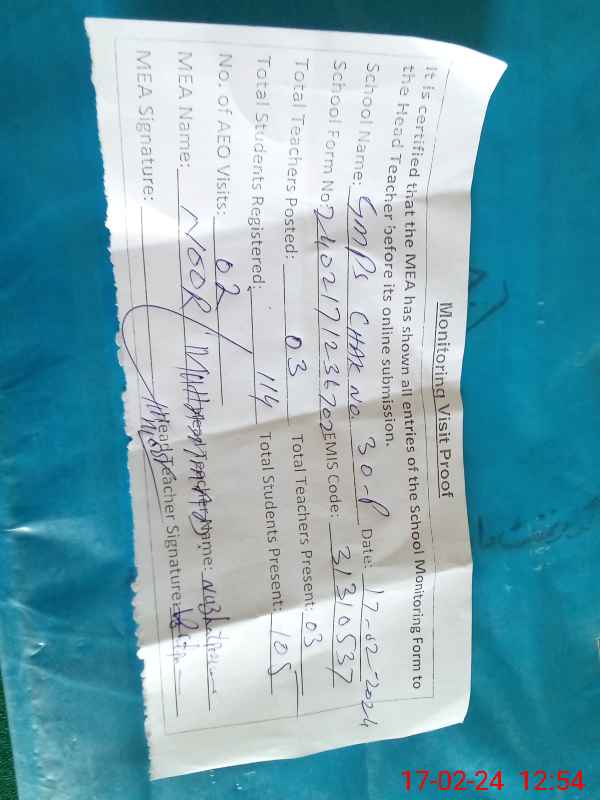 Monitoring Visit Proof
It is certified that the MEA has shown all entries of the School Monitoring Form to
the Head Teacher before its online submission.
School Name: GMPS CHAK No. 30-P Date: 17-02-2024
School Form No: 2402171236702 EMIS Code: 31310537
Total Teachers Posted: 03 Total Teachers Present: 03
Total Students Registered: 114 Total Students Present: 105
No. of AEO Visits: 02
MEA Name: NOOR MUHAMMAD Name:
MEA Signature: Head Teacher Signature:
17-02-24 12:54